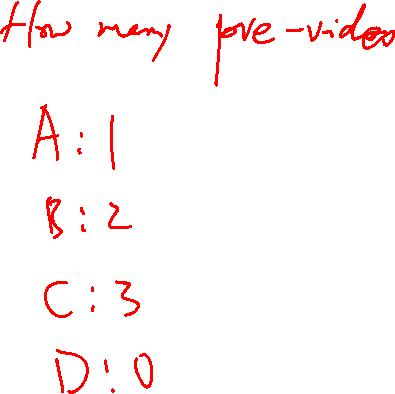 How many pre-video
A: 1
B: 2
C: 3
D: 0